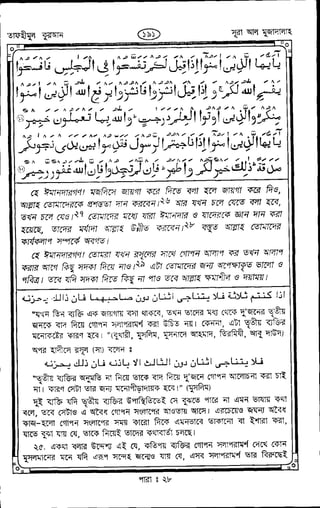 তাফহীমুল কুরআন
১৯১
সূরা আল মুজাদালাহ
يٰٓاَيُّهَا الَّذِيْنَ اٰمَنُوْٓا اِذَا قِيْلَ لَكُمْ تَفَسَّحُوْا فِى الْمَجٰلِسِ فَافْسَحُوْا
يَفْسَحِ اللهُ لَكُمْ ۚ وَاِذَا قِيْلَ انْشُزُوْا فَانْشُزُوْا يَرْفَعِ اللهُ الَّذِيْنَ اٰمَنُوْا
مِنْكُمْ ۙ وَالَّذِيْنَ اُوْتُوا الْعِلْمَ دَرَجٰتٍ ۗ وَاللهُ بِمَا تَعْمَلُوْنَ خَبِيْرٌ
يٰٓاَيُّهَا الَّذِيْنَ اٰمَنُوْٓا اِذَا نَاجَيْتُمُ الرَّسُوْلَ فَقَدِّمُوْا بَيْنَ يَدَىْ نَجْوٰىكُمْ
صَدَقَةً ۗ ذٰلِكَ خَيْرٌ لَّكُمْ وَاَطْهَرُ ۗ فَاِنْ لَّمْ تَجِدُوْا فَاِنَّ اللهَ غَفُوْرٌ رَّحِيْمٌ
হে ঈমানদারগণ! মজলিসে জায়গা করে দিতে বলা হলে জায়গা করে দিও,
আল্লাহ তোমাদেরকে প্রশস্ততা দান করবেন।২৬ আর যখন চলে যেতে বলা হবে,
তখন চলে যেও।২৭ তোমাদের মধ্যে যারা ঈমানদার ও যাদেরকে জ্ঞান দান করা
হয়েছে, তাদের মর্যাদা আল্লাহ উন্নীত করবেন।২৮ বস্তুত আল্লাহ তোমাদের
কার্যকলাপ সম্পর্কে অবগত।
হে ঈমানদারগণ! তোমরা যখন রসূলের সাথে গোপন আলাপ কর তখন আলাপ
করার আগে কিছু সদকা দিয়ে নাও।২৯ এটা তোমাদের জন্য অপেক্ষাকৃত ভালো ও
পবিত্র। তবে যদি সদকা দিতে কিছু না পাও তবে আল্লাহ ক্ষমাশীল ও দয়াময়।
اذا كنتم ثلاثة فلا يتناجى اثنان دون صاحبهما فان ذالك يحزنه
"যখন তিন ব্যক্তি এক জায়গায় বসা থাকবে, তখন তাদের মধ্য থেকে দু'জনের তৃতীয়
জনকে বাদ দিয়ে গোপন সলাপরামর্শ করা উচিত নয়। কেননা, এটা তৃতীয় ব্যক্তির
মনোকষ্টের কারণ হবে। "(বুখারী, মুসলিম, মুসনাদে আহমাদ, তিরমিযী, আবু দাউদ)।
অপর হাদীসে রসূল (সা) বলেন :
فلا يتناجى اثنان دون الثالث الا باذنه فان ذلك يحزنه
"তৃতীয় ব্যক্তির অনুমতি না নিয়ে তাকে বাদ দিয়ে দু'জনে গোপন আলোচনা করা চাই
না। কারণ সেটা তার জন্য মনোপীড়াদায়ক হবে।" (মুসলিম)
দুই ব্যক্তি যদি তৃতীয় ব্যক্তির উপস্থিতিতেই সে বুঝতে পারে না এমন ভাষায় কথা
বলে, তবে সেটাও এ অবৈধ গোপন সংলাপের আওতায় আসে। এরচেয়েও জঘন্য অবৈধ
কাজ-হলো গোপন সংলাপের সময় কারো দিকে এমনভাবে তাকানো বা ইশারা করা,
যাতে বুঝা যায় যে, তাকে নিয়েই তাদের কথাবার্তা চলছে।
২৫. একথা বলার উদ্দেশ্য এই যে, কতিপয় ব্যক্তির গোপন সলাপরামর্শ দেখে কোন
মুসলমানের মনে যদি এরূপ সন্দেহ জন্মেও যায় যে, এসব সলাপরামর্শ তার বিরুদ্ধেই
পারা : ২৮